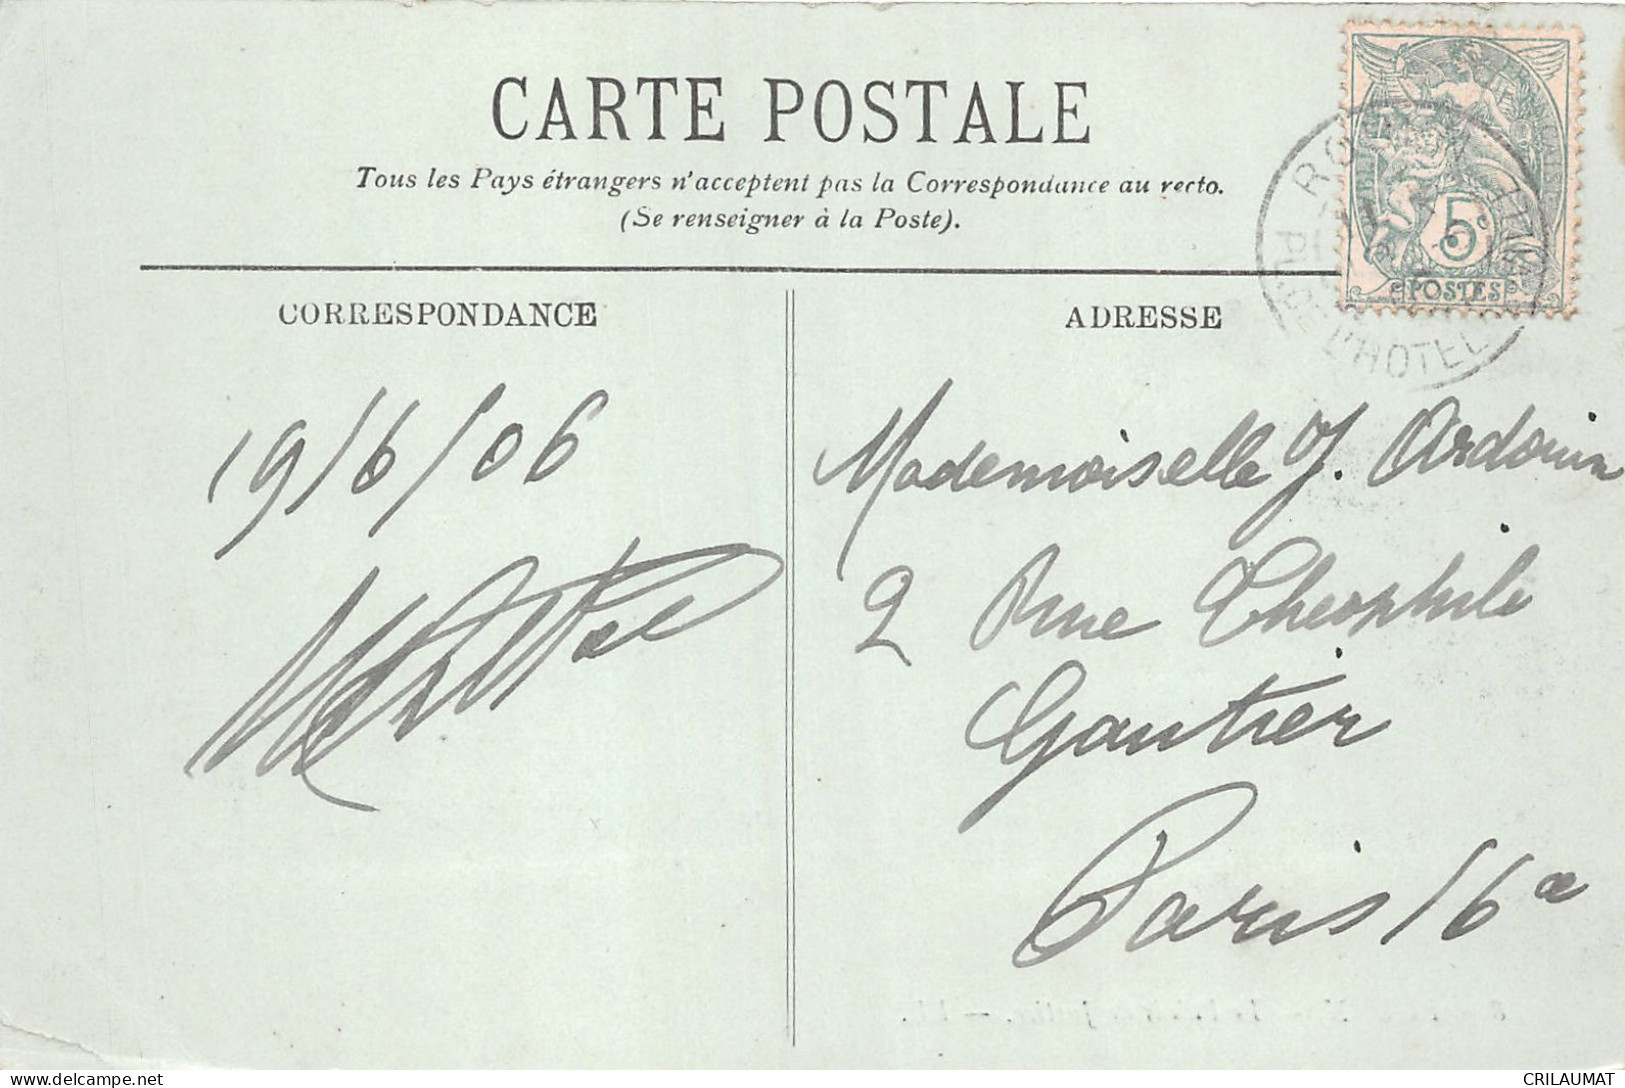 CARTE POSTALE
Tous les Pays étrangers n'acceptent pas la Correspondance au recto.
(Se renseigner à la Poste).
5c
POSTES
CORRESPONDANCE
ADRESSE
L'HOTEL
19/6/06
Mademoiselle J. Ardouin
2 Rue Theophile
Gautier
Paris 16e
CRILAUMAT